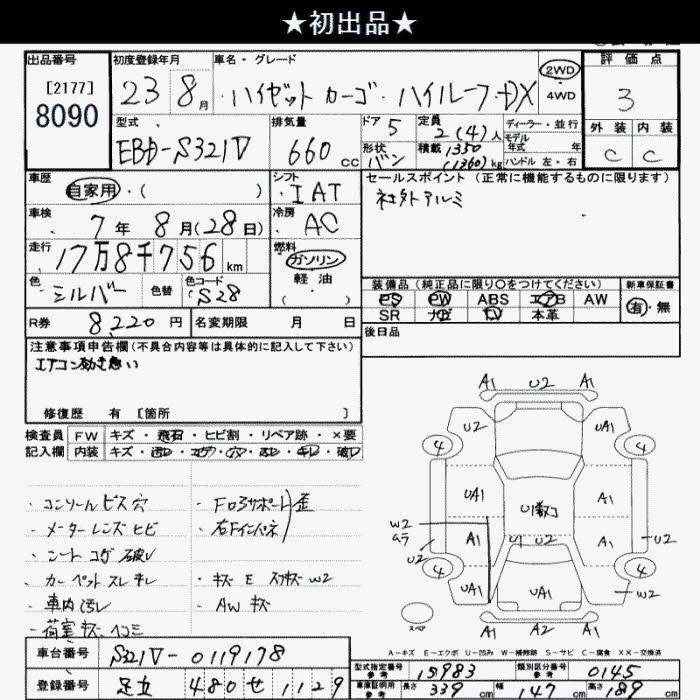 ★初出品★
出品番号
[2177]
8090
初度登録年月
23 8月
車名・グレード
ハイゼット カーゴ・ハイルーフ・DX
2WD
4WD
評価点
3
外装 内装
C C
型式
EBD-S321V
排気量
660 cc
ドア 5
形状 バン
定員 2(4)人
積載 350
(1360)kg
ディーラー・並行
モデル
年式 年
ハンドル 左・右
車歴
自家用・( )
シフト
IAT
セールスポイント (正常に機能するものに限ります)
社外アルミ
車検
7年 8月(28日)
冷房
AC
走行
17万8千756km
燃料
ガソリン
軽油
( )
色
シルバー
色替
色コード
S28
装備品 (純正品に限り○をつけてください)
PS PW ABS エアB AW
SR ナビ TV 本革
新車保証書
有・無
R券 8220円
名変期限 月 日
後日品
注意事項申告欄(不具合内容等は具体的に記入して下さい)
エアコン効き悪い
修復歴 有 [箇所 ]
検査員
記入欄
FW キズ・飛石・ヒビ割・リペア跡・×要
内装 キズ・汚レ・コゲ・穴・スレ・キレ・破レ
・コンソールビス穴
・メーターレンズヒビ
・シートコゲ破レ
・カーペットスレキレ
・車内汚レ
・荷室キズヘコミ
・FロアサポートJ歪
・右Fインパネ
・キズE スアW2
・AWキズ
A1 U2 A1
U2 UA1
4 4
UA1 A1
U1数コ
W2
A1 U1 U2 A1
U2 U2
4 4
UA1 UA1 UA1
W2
スペア
A1 A2 A1
A-キズ E-エクボ U-凹み W-補修跡 S-サビ C-腐食 XX-交換済
車台番号 S321V-0119178
登録番号 足立 480せ1129
型式指定番号
参考
15983
類別区分番号
参考
0145
車庫証明用
参考
長さ 339cm 幅 147cm 高さ 189cm